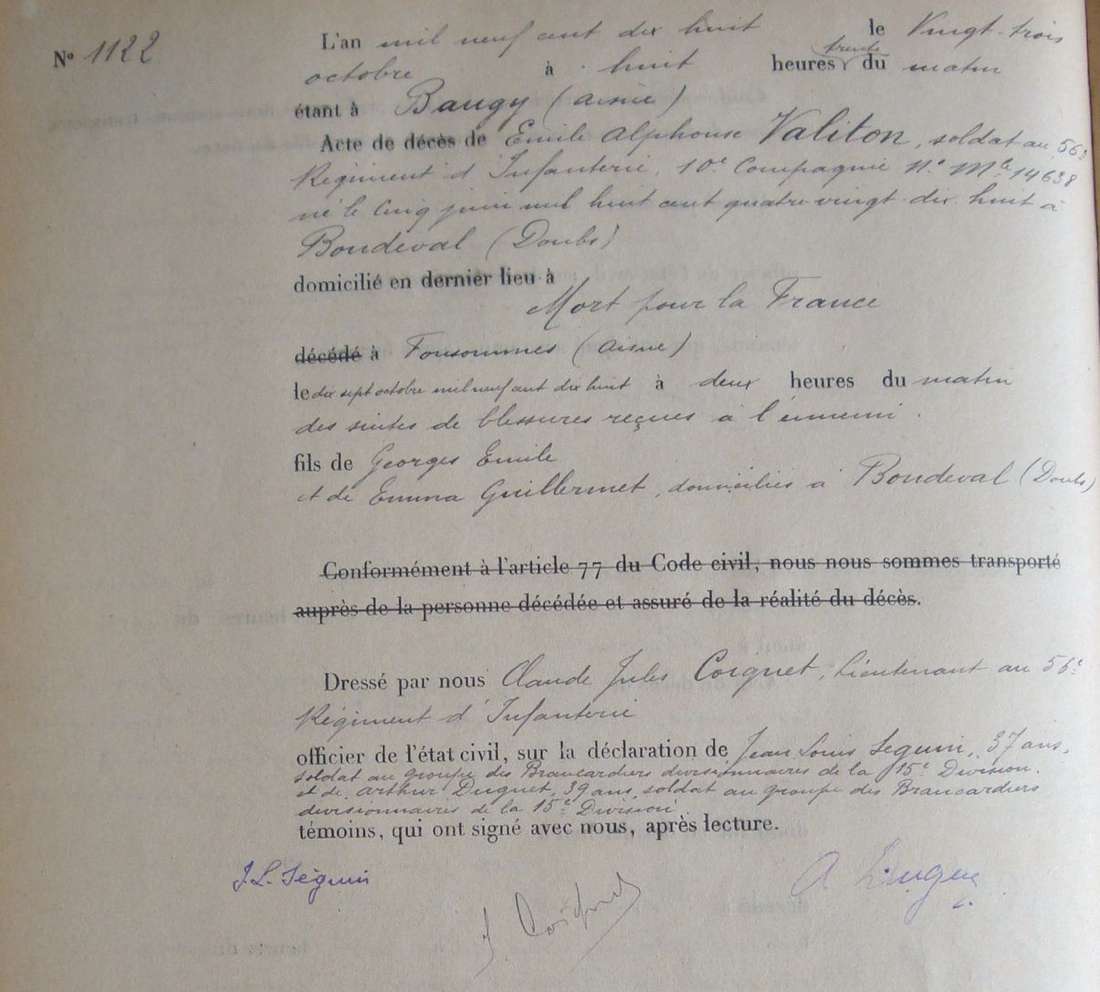 N° 1122
L'an mil neuf cent dix huit le Vingt-trois
octobre à huit heures trente du matin
étant à Baugy (Aisne)
Acte de décès de Emile Alphonse Valiton, soldat au 56e
Régiment d'Infanterie, 10e Compagnie N° Mle 14638
né le cinq juin mil huit cent quatre vingt dix huit à
Bondeval (Doubs)
domicilié en dernier lieu à
Mort pour la France
décédé à Fonsommes (Aisne)
le dix sept octobre mil neuf cent dix huit à deux heures du matin
des suites de blessures reçues à l'ennemi.
fils de Georges Emile
et de Emma Guillermet, domiciliés à Bondeval (Doubs)
Conformément à l'article 77 du Code civil, nous nous sommes transporté
auprès de la personne décédée et assuré de la réalité du décès.
Dressé par nous Claude Jules Coignet, Lieutenant au 56e
Régiment d'Infanterie
officier de l'état civil, sur la déclaration de Jean Louis Seguin, 37 ans,
soldat au groupe des Brancardiers divisionnaires de la 15e Division.
et de Arthur Duguet, 39 ans, soldat au groupe des Brancardiers
divisionnaires de la 15e Division
témoins, qui ont signé avec nous, après lecture.
J.L. Séguin
J. Coignet
A. Duguet